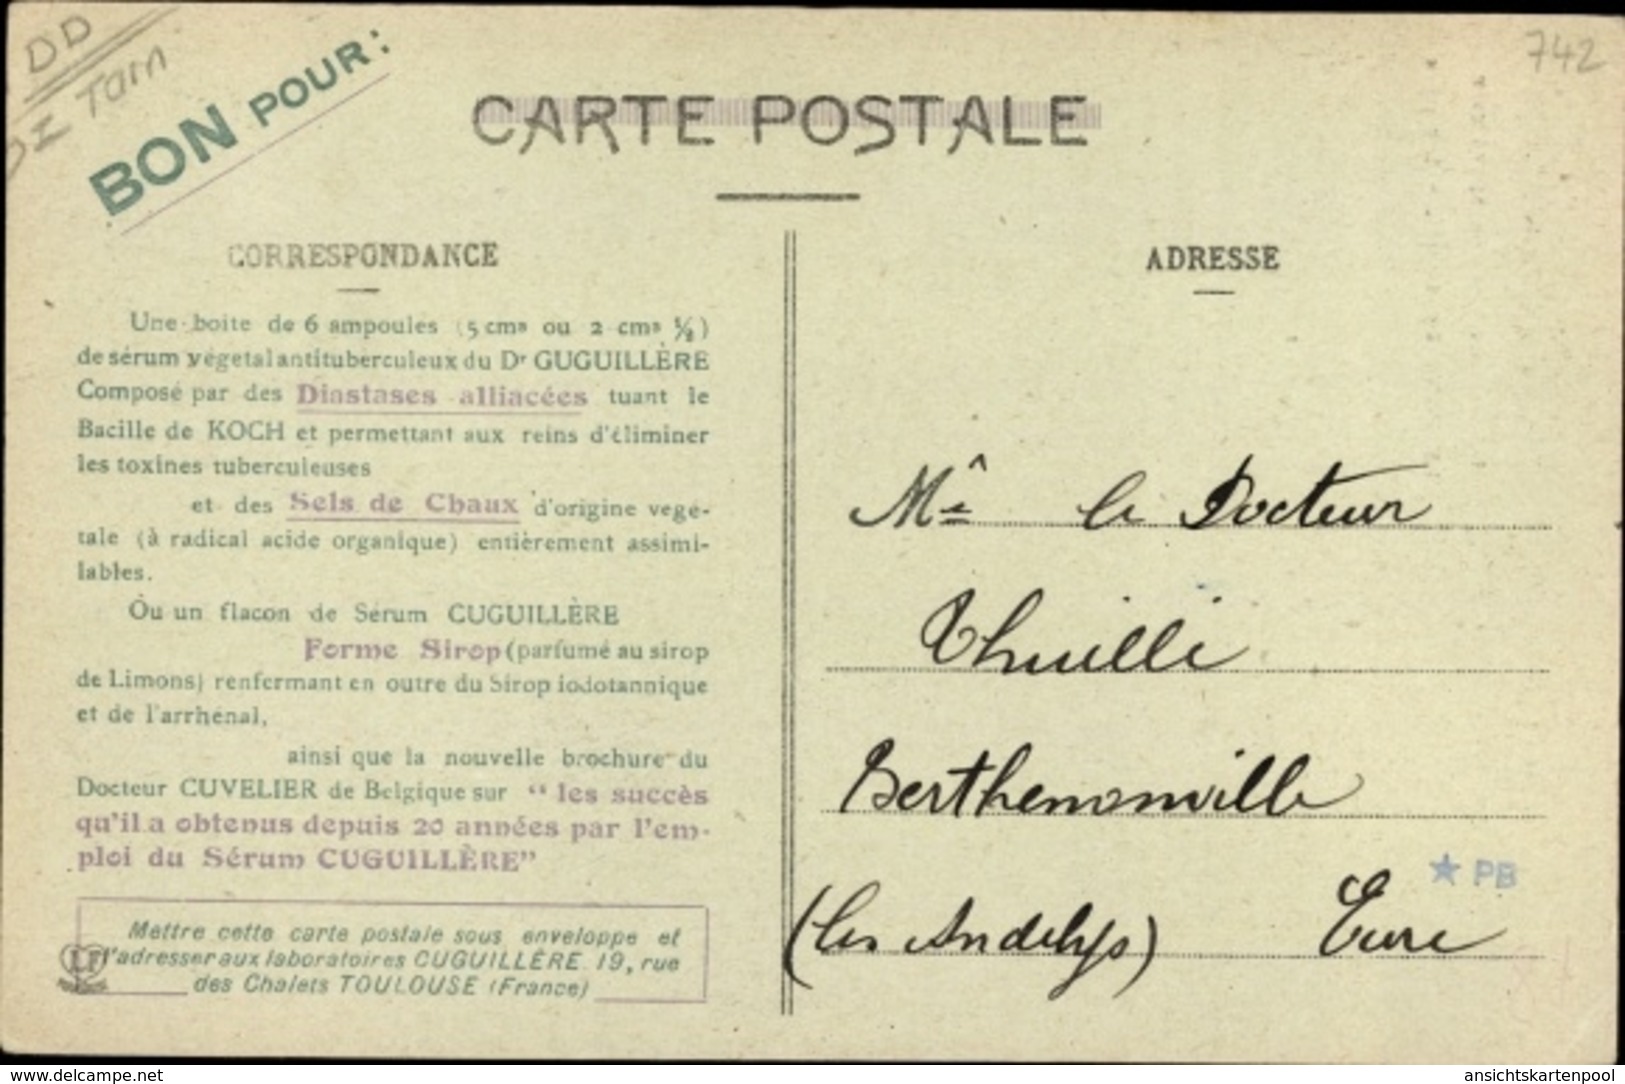 DD
Tarn
742
BON POUR:
CARTE POSTALE
CORRESPONDANCE
ADRESSE
Une boite de 6 ampoules (5 cm³ ou 2 cm³ ½)
de sérum végétal antituberculeux du Dr GUGUILLÈRE
Composé par des Diastases alliacées tuant le
Bacille de KOCH et permettant aux reins d'éliminer
les toxines tuberculeuses
et des Sels de Chaux d'origine vegé-
tale (à radical acide organique) entièrement assimi-
lables.
Ou un flacon de Sérum CUGUILLÈRE
Forme Sirop (parfumé au sirop
de Limons) renfermant en outre du Sirop iodotannique
et de l'arrhénal,
ainsi que la nouvelle brochure du
Docteur CUVELIER de Belgique sur "les succès
qu'il a obtenus depuis 20 années par l'em-
ploi du Sérum CUGUILLÈRE"
Mettre cette carte postale sous enveloppe et
l'adresser aux laboratoires CUGUILLÈRE 19, rue
des Chalets TOULOUSE (France)
LF
Mr le Docteur
Thuillé
Berthenonville
(les Andelys) Eure
PB
www.delcampe.net
ansichtskartenpool